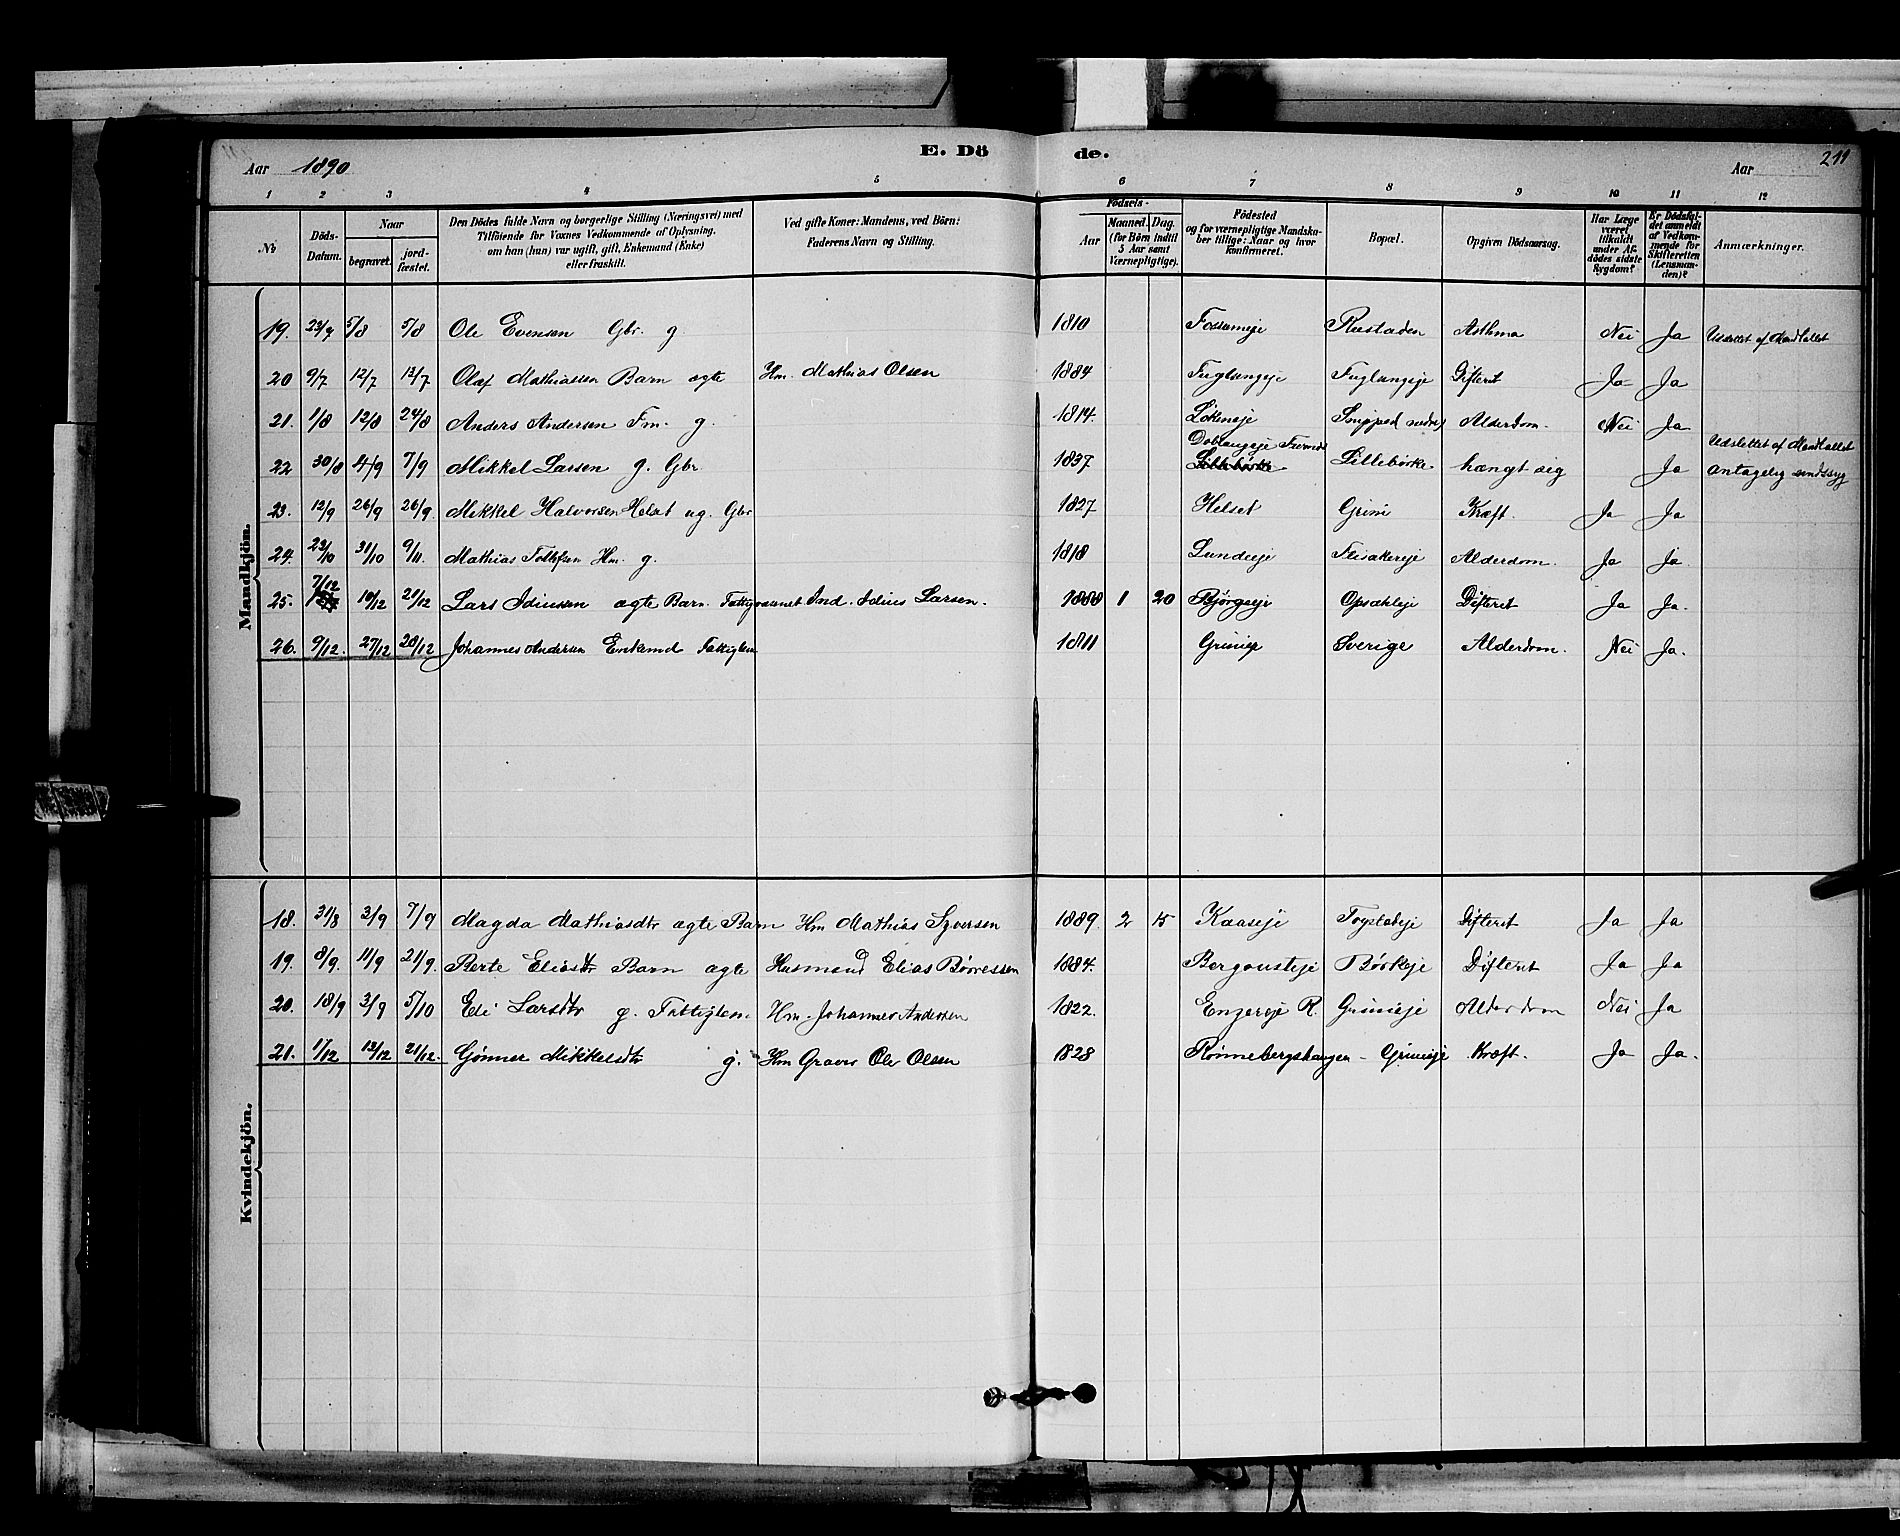 Aar 1890 E. Dö de. Aar 211
1 2 3 4 5 6 7 8 9 10 11 12
No
Döds-Datum.
Naar begravet. jordfæstet.
Den Dödes fulde Navn og borgerlige Stilling (Næringsvei) med Tilföiende for Voxnes Vedkommende af Oplysning, om han (hun) var ugift, gift, Enkemand (Enke) eller fraskilt.
Ved gifte Koner: Mandens, ved Börn: Faderens Navn og Stilling.
Födsels- Aar Maaned. Dag. (for Börn indtil 5 Aar samt Værnepligtige).
Födested og for værnepligtige Mandskaber tillige: Naar og hvor konfirmeret.
Bopæl.
Opgiven Dödsaarsag.
Har Læge været tilkaldt under Afdödes sidste Sygdom?
Er Dödsfaldet anmeldt af Vedkommende for Skifteretten (Lensmanden)?
Anmærkninger.
Mandkjön.
19. 23/7 5/8 5/8 Ole Evensen Gbr. g 1810 Fossumeje Rustaden Asthma Nei Ja Udslettet af Mandtallet
20 9/7 12/7 13/7 Olaf Mathiassen Barn ægte Hm. Mathias Olsen 1884 Fuglungeje Fuglungeje Difterit Ja Ja
21. 1/8 12/8 24/8 Anders Andersen Fm. g. 1814. Lökeneje Alderdom. Nei Ja
22 30/8 4/9 7/9 Mikkel Larsen g. Gbr. 1837 Lillebörke Lillebörke hængt sig Ja Udslettet af Mandtallet antagelig sindssyg
23. 12/9 26/9 26/9 Mikkel Halvorsen Helset ug. Gbr 1827 Helset Grini Kræft. Ja Ja
24. 23/10 31/10 9/11. Mathias Tollefsen Hm. g. 1818 Lundeje Flisakereje Alderdom. Ja Ja
25. 7/12 10/12 21/12 Lars Idiussen ægte Barn. Ind. Idius Larsen. 1888 1 20 Bjørgeeje Opsahleje Difterit Ja Ja.
26. 9/12. 27/12 28/12 Johannes Andersen Enkemd Fattiglem 1811 Grinieje Sverige Alderdom. Nei Ja.
Kvindekjön.
18. 31/8 3/9 7/9 Magda Mathiasdtr ægte Barn Hm Mathias Syversen 1889. 2 15 Kaaseje Togstadeje Difterit Ja Ja
19. 8/9. 11/9 21/9. Berte Eliasdtr Barn ægte Husmand Elias Börresen 1884. Bergousteje Börkeje Difterit Ja Ja
20. 18/9 3/9 5/10 Eli Larsdtr g. Fattiglem. Hm. Johannes Andersen 1822. Engereje R. Grinieje Alderdom Nei Ja
21. 1/12 13/12 21/12. Gönner Mikkelsdtr g. Hm Graver Ole Olsen 1828 Rønnebergshaugen - Grinieje Kræft. Ja Ja.